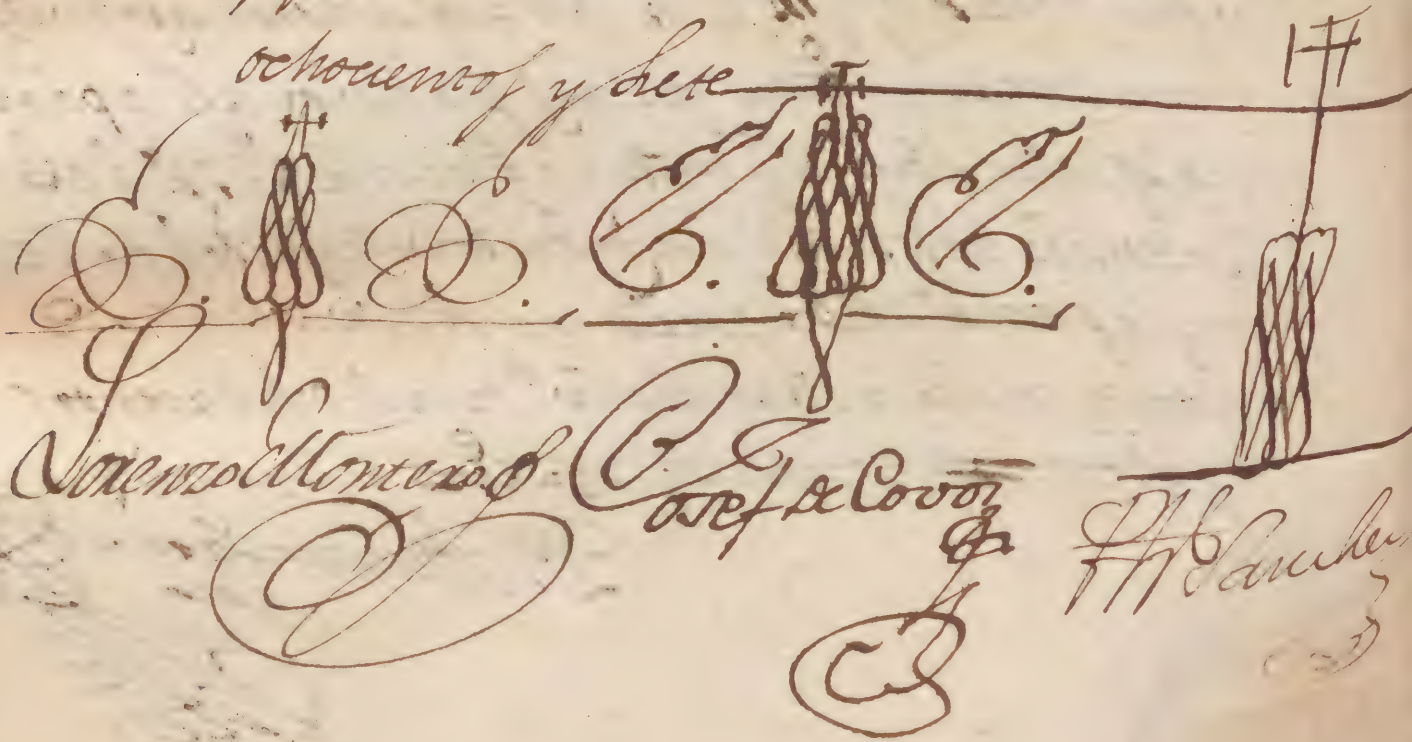 ochocientos y siete
Lorenzo Montero Josef de Covos Sanchez